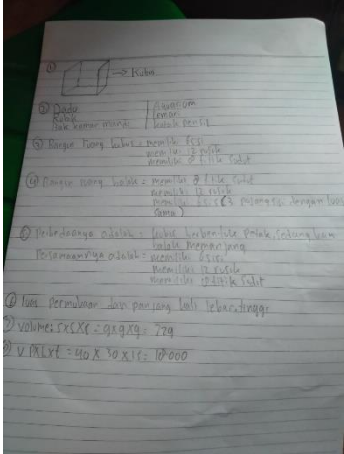 ① → Kubus
② Dadu | Aquarium
Kotak | Lemari
Bak kamar mandi | kotak pensil
③ Bangun ruang kubus = memiliki 6 sisi
memiliki 12 rusuk
memiliki 8 titik sudut
④ Bangun ruang balok = memiliki 8 titik sudut
memiliki 12 rusuk
memiliki 6 sisi (3 pasang sisi dengan luas
sama)
⑤ Perbedaanya adalah : kubus berbentuk petak, sedangkan
balok memanjang
Persamaannya adalah = memiliki 6 sisi
memiliki 12 rusuk
memiliki titik sudut
⑥ luas permukaan dan panjang kali lebar tinggi
⑦ volume: SxSxS = 9x9x9 = 729
⑧ V PxLxt = 40 x 30 x 15 = 18000